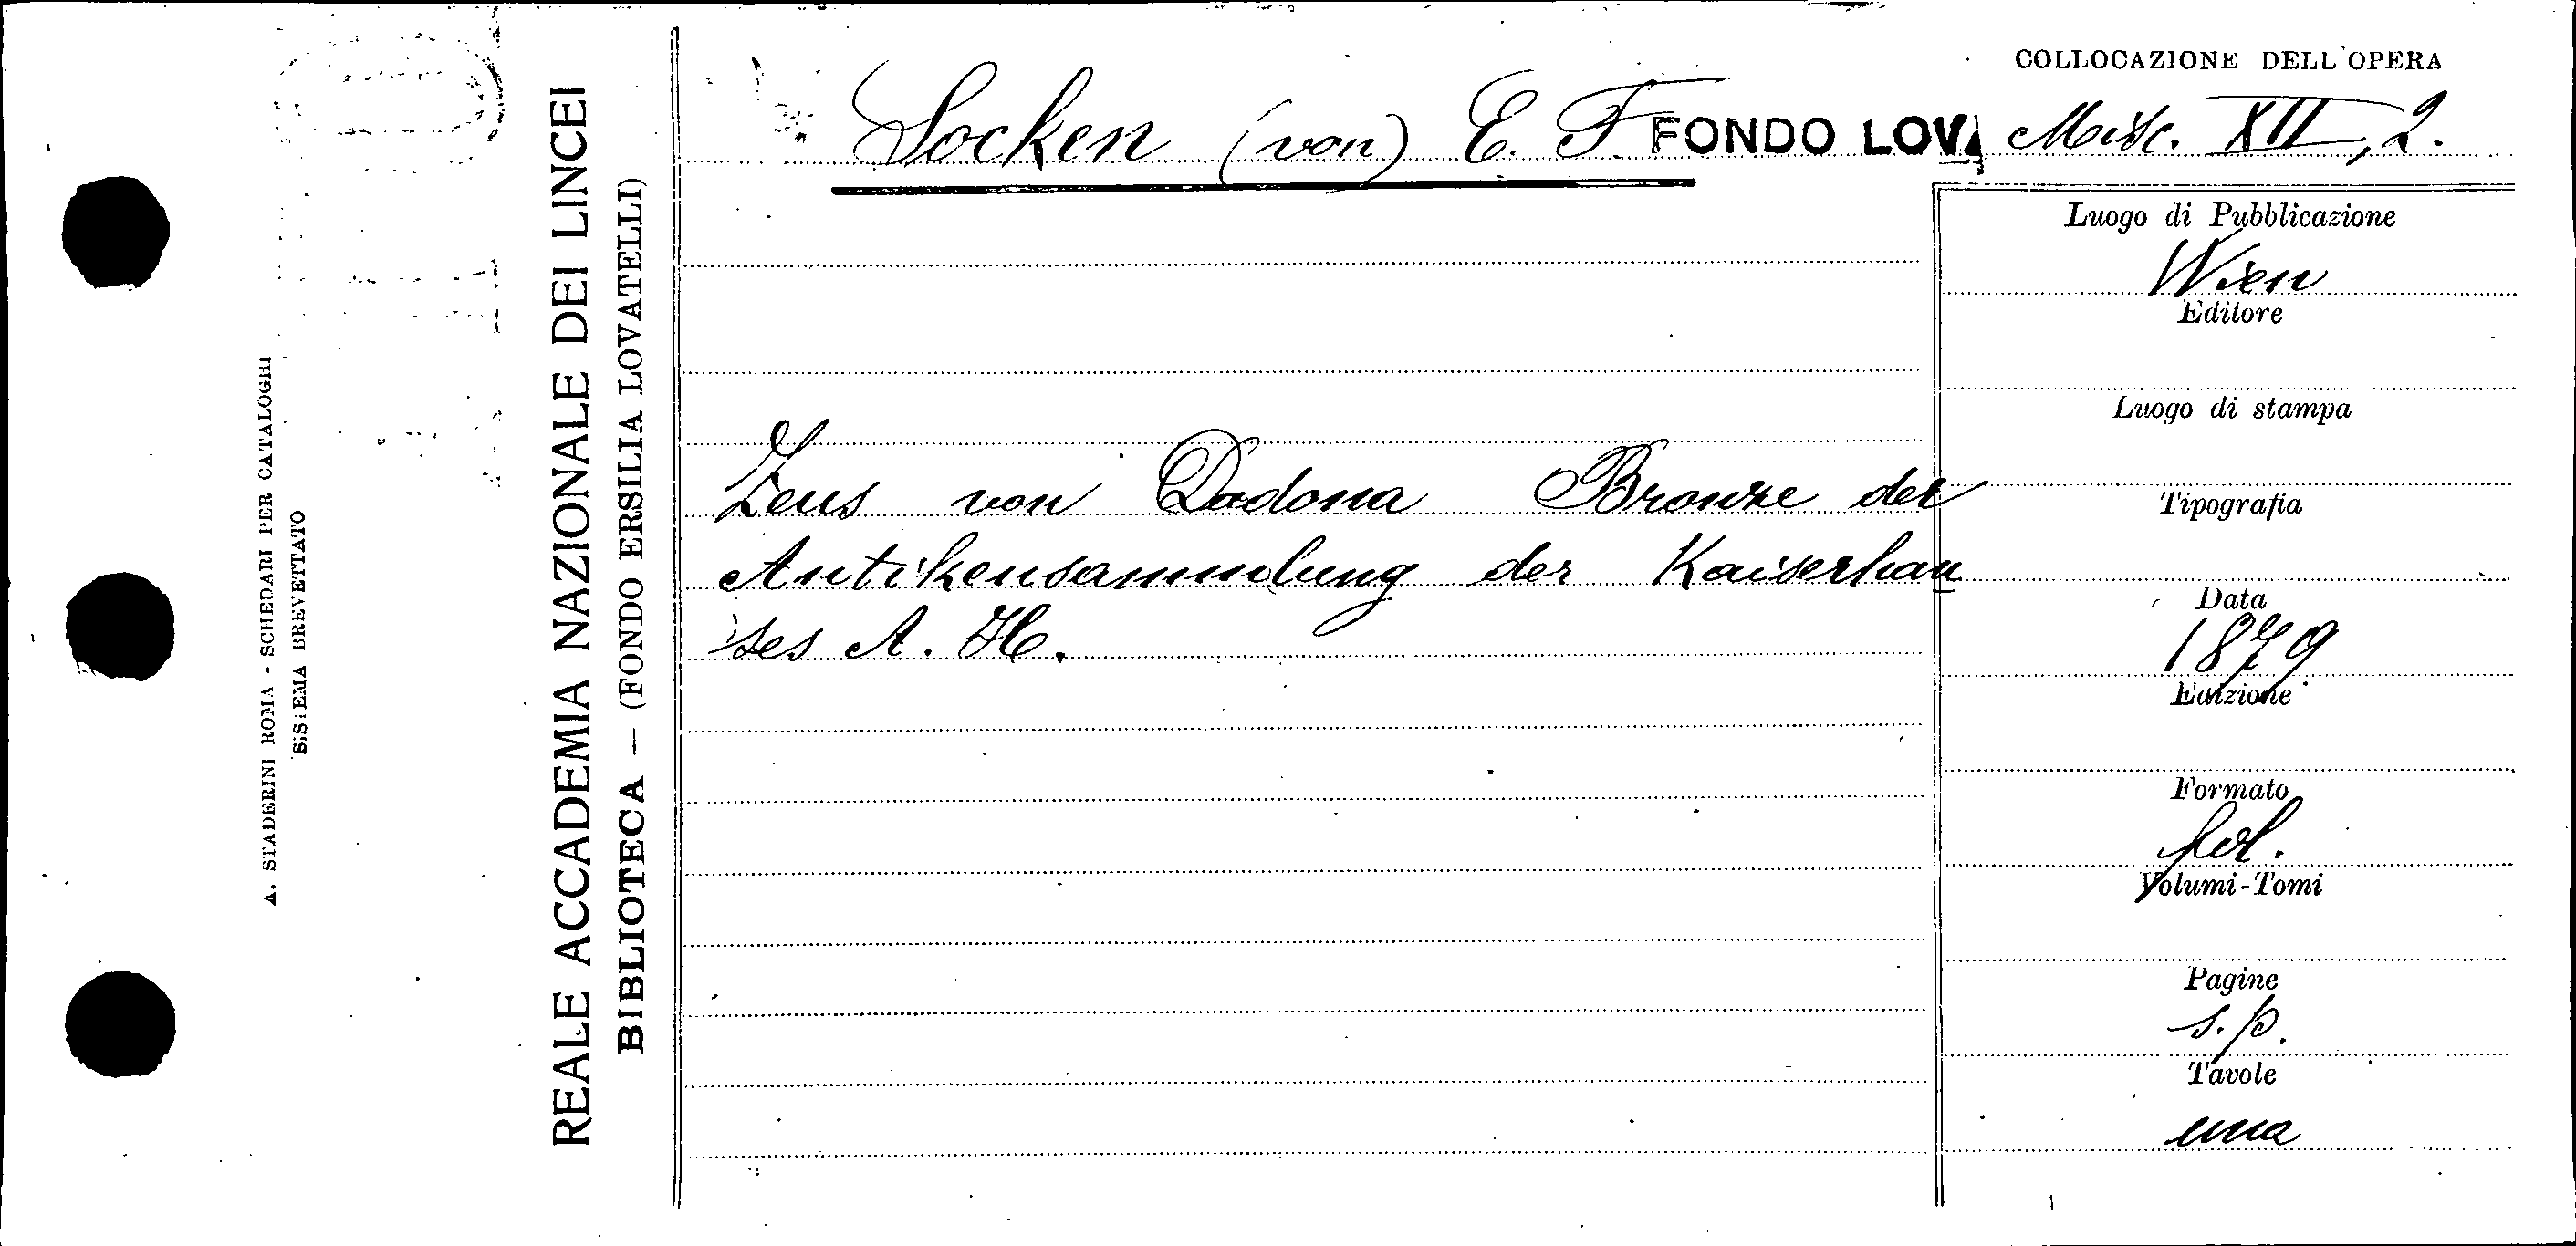 A. STADERINI ROMA - SCHEDARI PER CATALOGHI
SISTEMA BREVETTATO
REALE ACCADEMIA NAZIONALE DEI LINCEI
BIBLIOTECA — (FONDO ERSILIA LOVATELLI)
Socken (von) E. F. FONDO LOVA
COLLOCAZIONE DELL'OPERA
Misc. XII, 2.
Zeus von Dodona Bronze der
Antikensammlung des Kaiserhau
ses A. H.
Luogo di Pubblicazione
Wien
Editore
Luogo di stampa
Tipografia
Data
1879
Edizione
Formato
fol.
Volumi-Tomi
Pagine
s. p.
Tavole
una